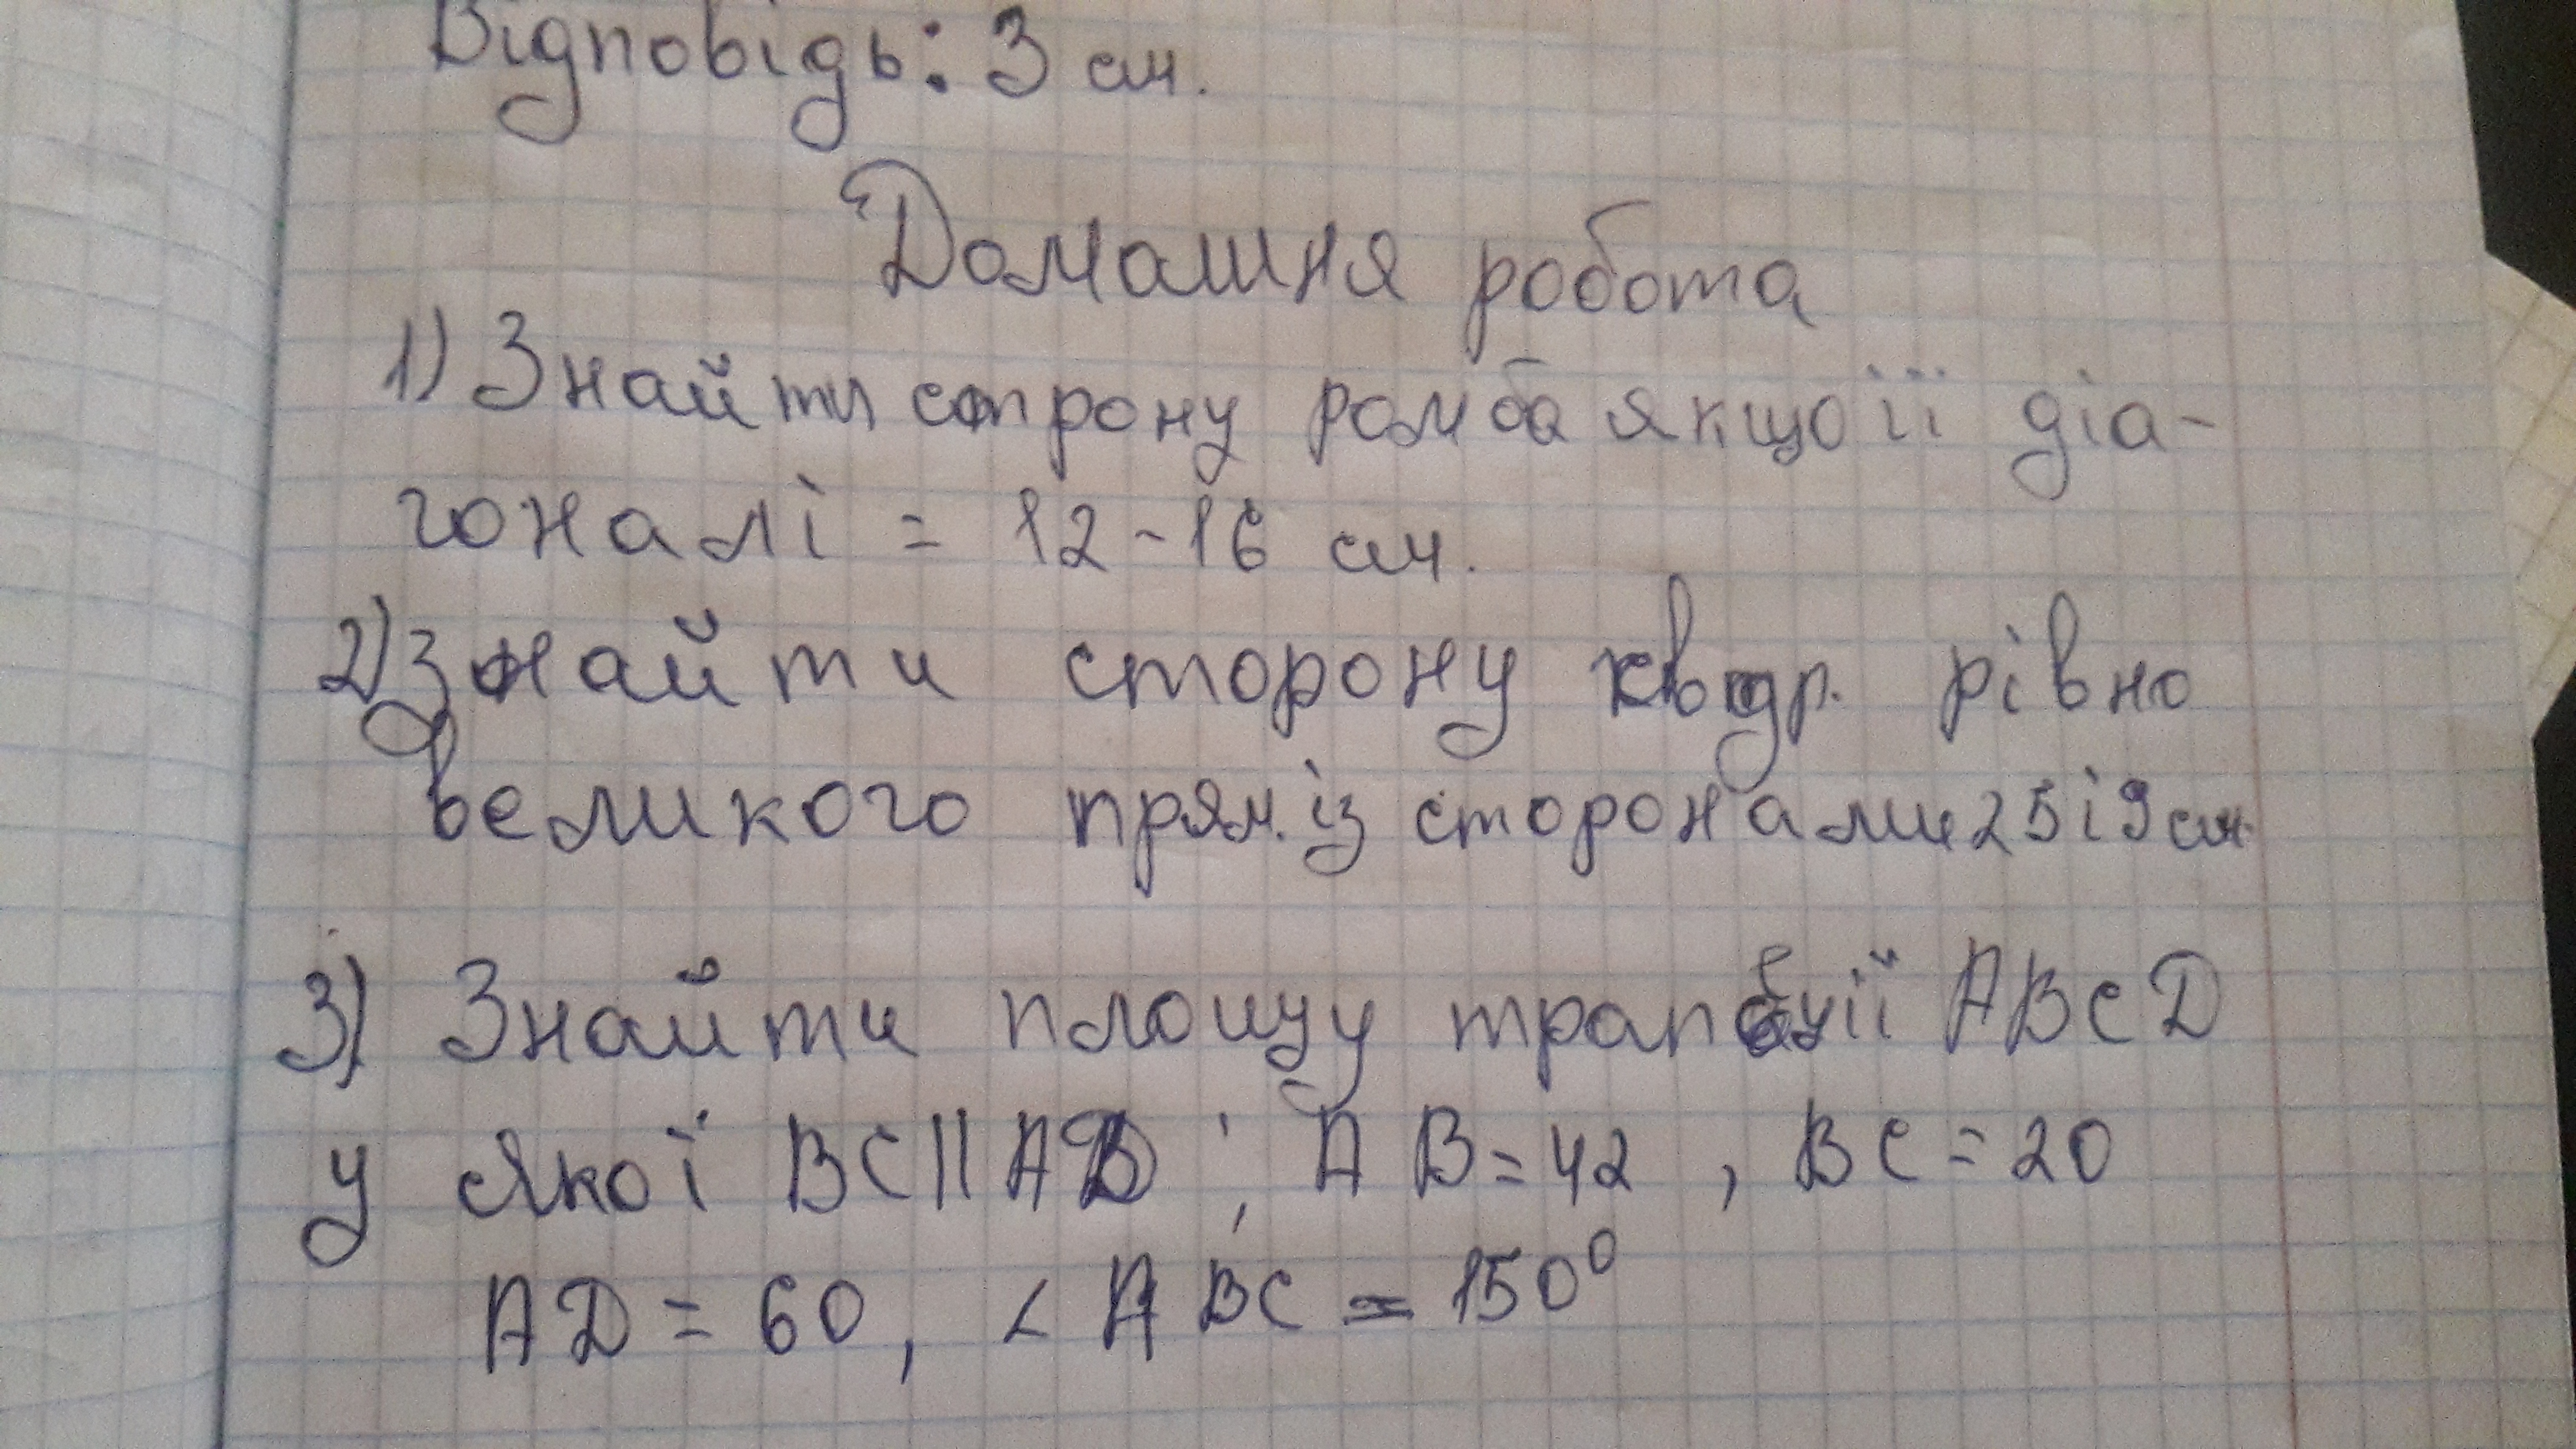 Відповідь: 3 см.
Домашня робота
1) Знайти сторону ромба якщо її діа-
гоналі = 12-16 см.
2) Знайти сторону квадр. рівно
великого прям. із сторонами 25 і 9 см.
3) Знайти площу трапеції ABCD
у якої BC || AD ; AB = 42 , BC = 20
AD = 60, < ABC = 150⁰